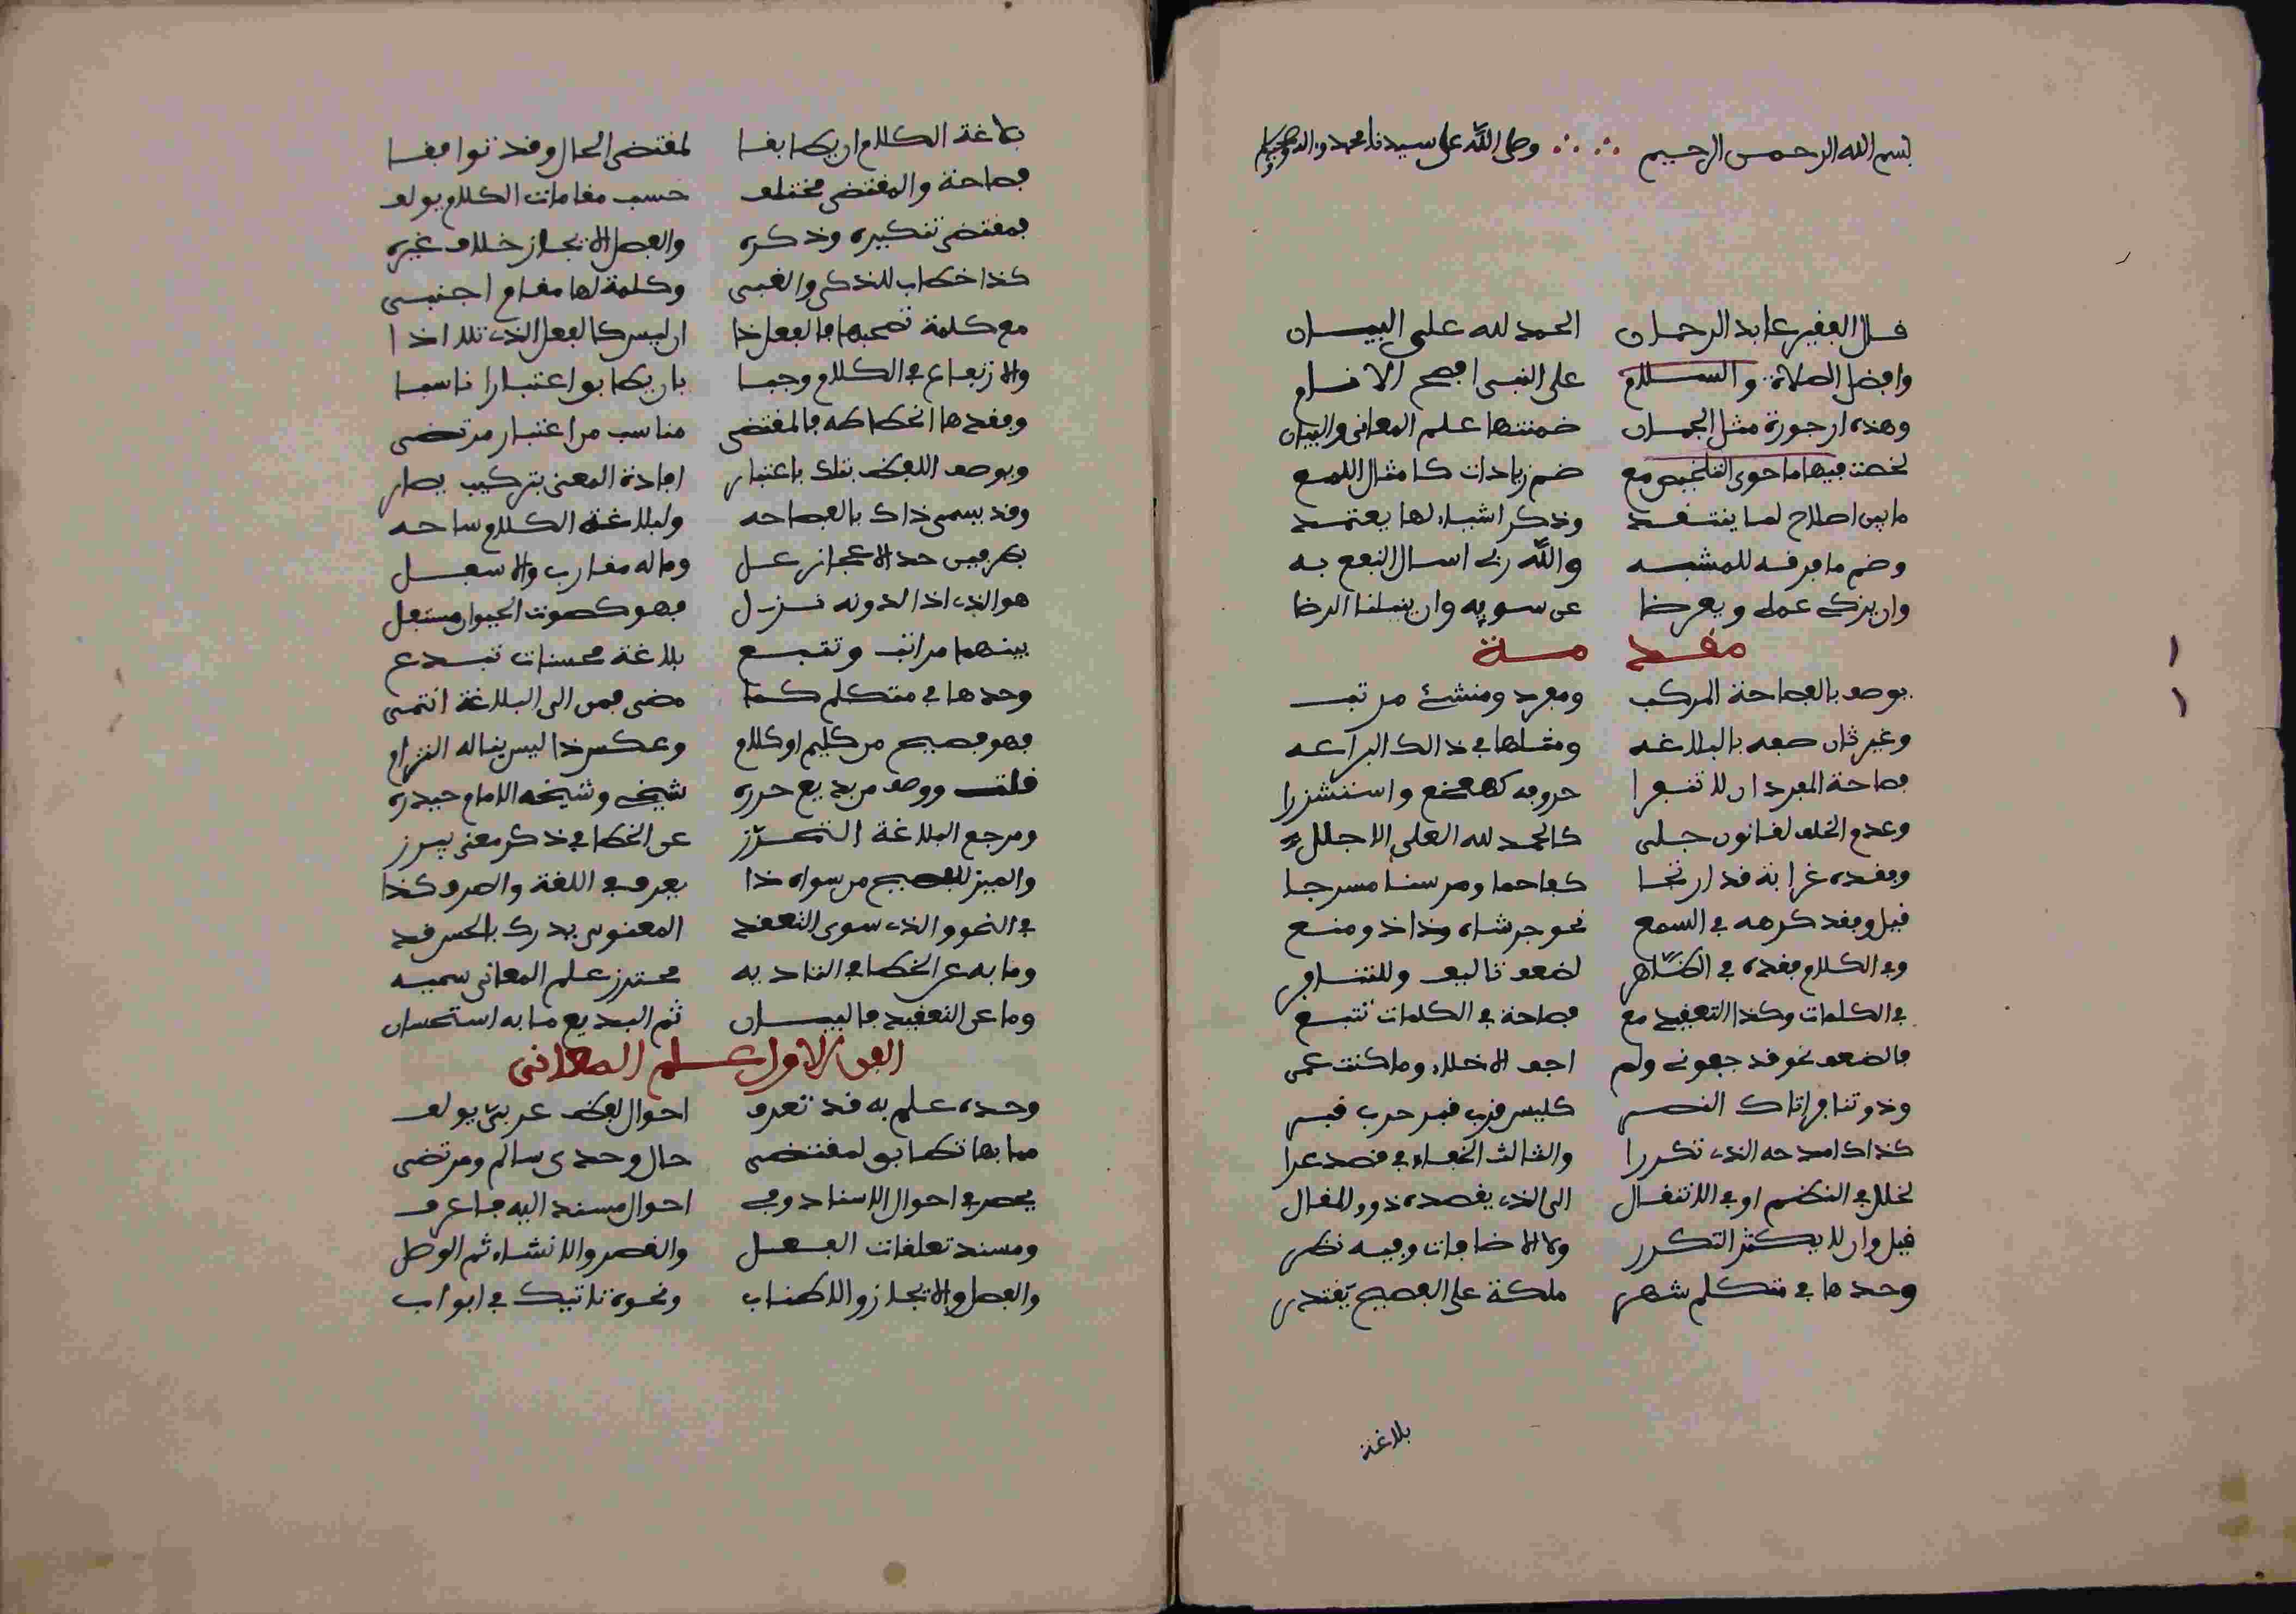 بسم الله الرحمن الرحيم وصلى الله على سيدنا محمد وءاله وصحبه وسلم
قال الفقير عابد الرحمان الحمد لله على البيان
وافضل الصلاة والسلام على النبي افصح الانام
وهذه ارجوزة مثل الجمان ضمنتها علم المعاني والبيان
لخصت فيها ما حوى التلخيص مع ضم زيادات كامثال اللمع
ما بين اصلاح لما ينتقد وذكر اشياء لها يعتمد
وضم ما فرقه للمشبه والله ربي اسال النفع به
وان يزكي عملي ويعرضا عن سوءه وان ينيلنا الرضا
مقدمة
يوصف بالفصاحة المركب ومفرد ومنشئ مرتب
وغير ثان صفه بالبلاغه ومثلها في ذالك البراعه
فصاحة المفرد ان لا تنفرا حروفه كهعخع واستشزرا
وعدم الخلف لقانون جلي كالحمد لله العلي الاجلل
وفقده غرابة قد ارتجا كفاحما ومرسنا مسرجا
قيل وفقد كرهه في السمع نحو جرشاه وذا ذو منع
وفي الكلام فقده في الظاهر لضعف تاليف وللتنافر
في الكلمات وكذا التعقيد مع فصاحة في الكلمات تتبع
فالضعف نحو قد جفوني ولم اجف الاخلاء وما كنت عمي
وذو تنافر اتاك النصر كليس قرب قبر حرب قبر
كذاك امدحه الذي تكررا والثالث الخفاء في قصد عرا
لخلل في النظم او في الانتقال الى الذي يقصده ذوو المقال
قيل وان لا يكثر التكرر ولا الاضافات وفيه نظر
وحدها في متكلم شهر ملكة على الفصيح يقتدر
بلاغة
بلاغة الكلام ان يطابقا لمقتضى الحال وقد توافقا
فصاحة والمقتضى مختلف حسب مقامات الكلام يولف
فمقتضى تنكيره وذكره والفصل الايجاز خلاف غيره
كذا خطاب للذكي والغبي وكلمة لها مقام اجنبي
مع كلمة تصحبها فالفعل ذا ان ليس كالفعل الذي تلا اذا
والارتفاع في الكلام وجبا بان يطابق اعتبارا ناسبا
وفقدها انحطاطه فالمقتضى مناسب من اعتبار مرتضى
ويوصف اللفظ بتلك باعتبار افادة المعنى بتركيب يصار
وقد يسمى ذاك بالفصاحه ولبلاغة الكلام ساحه
بطرفين حد الاعجاز عل وما له مقارب والاسفل
هو الذي اذا لدونه نزل فهو كصوت الحيوان مستفل
بينهما مراتب وتتبع بلاغة محسنات تبدع
وحدها في متكلم كما مضى فمن الى البلاغة انتمى
فهو فصيح من كليم او كلام وعكس ذا ليس يناله التزام
قلت ووصف من بديع حرره شيخي وشيخه الامام حيدره
ومرجع البلاغة التحرز عن الخطا في ذكر معنى يبرز
والميز للفصيح من سواه ذا يعرف في اللغة والصرف كذا
في النحو والذي سوى التعقد المعنوي يدرك بالحس قد
وما به عن الخطا في التاديه محترز علم المعاني سميه
وما عن التعقيد فالبيان ثم البديع ما به استحسان
الفن الاول علم المعاني
وحده علم به قد تعرف احوال لفظ عربي يولف
مما بها تطابق لمقتضى حال وحدي سالم ومرتضى
يحصر في احوال الاسناد وفي احوال مسند اليه فاعرف
ومسند تعلقات الفعل والقصر والانشاء ثم الوصل
والفصل والايجاز والاطناب ونحوه تاتيك في ابواب